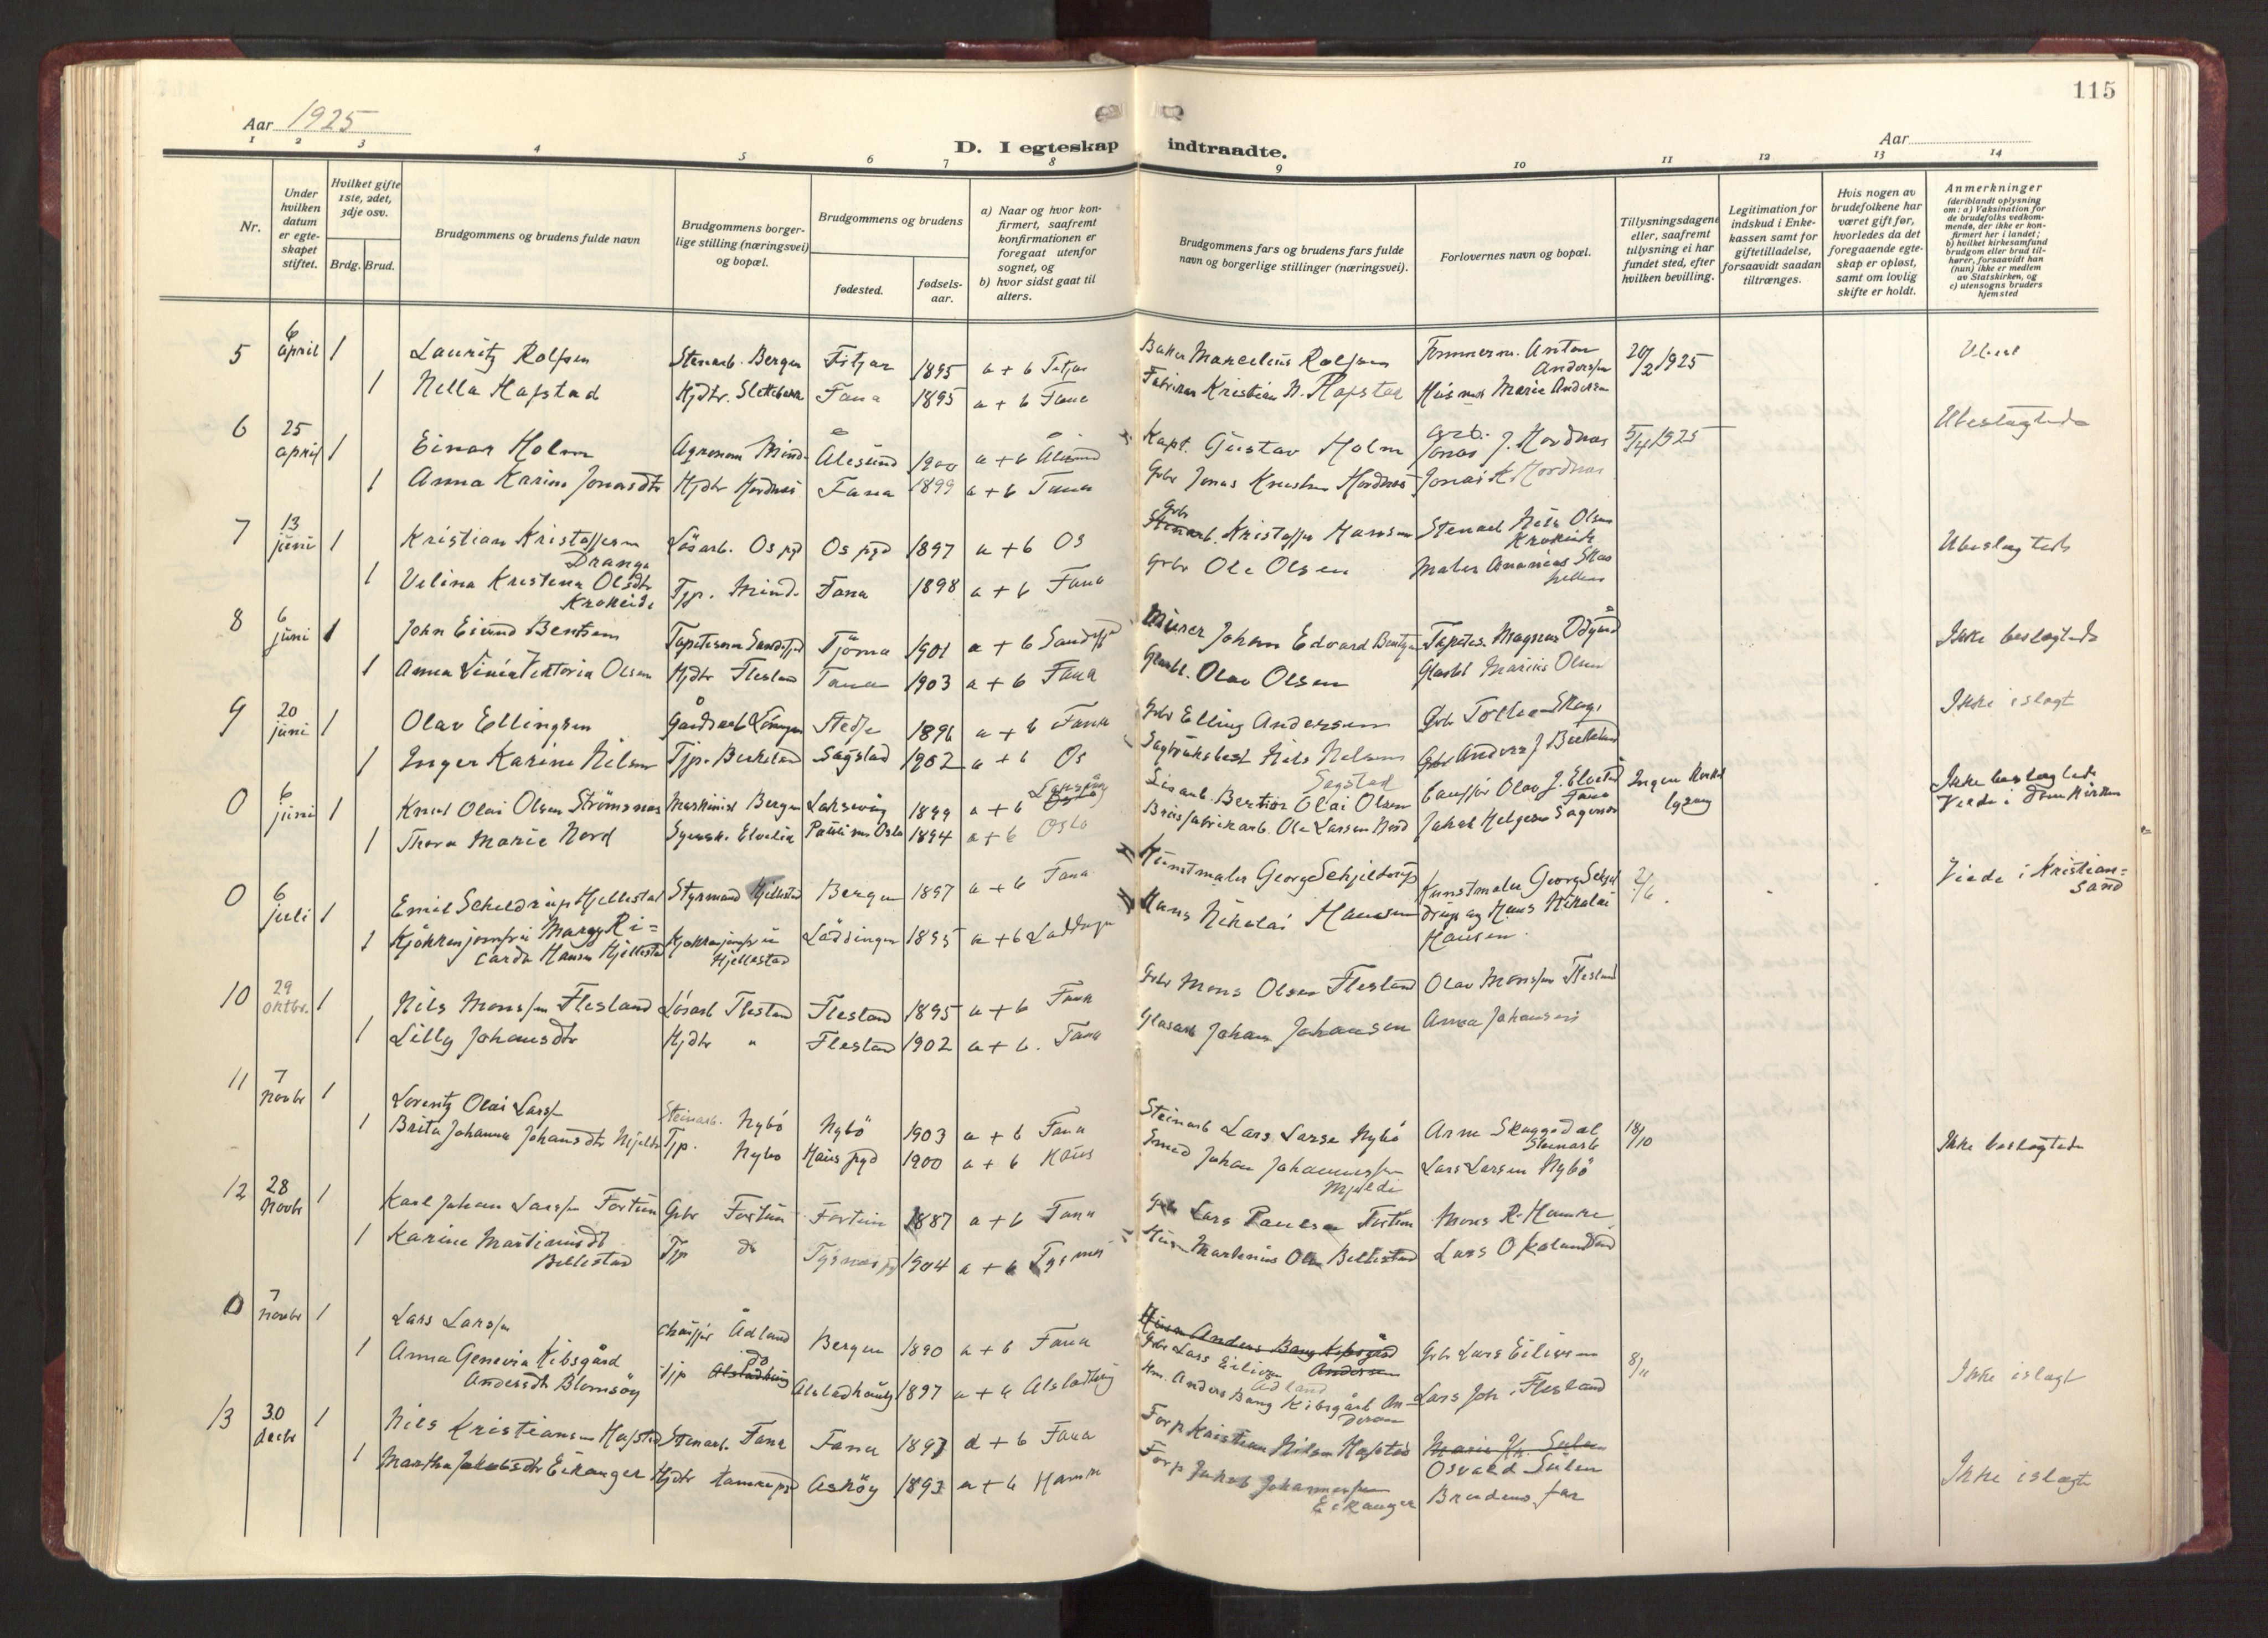 115
Aar 1925
Aar
D. I egteskap indtraadte.
1 2 3 4 5 6 7 8 9 10 11 12 13 14
Nr.
Under hvilken datum er egteskapet stiftet.
Hvilket gifte 1ste, 2det, 3dje osv.
Brdg. Brud.
Brudgommens og brudens fulde navn
Brudgommens borgerlige stilling (næringsvei) og bopæl.
Brudgommens og brudens
fødested.
fødselsaar.
a) Naar og hvor konfirmert, saafremt konfirmationen er foregaat utenfor sognet, og
b) hvor sidst gaat til alters.
Brudgommens fars og brudens fars fulde navn og borgerlige stillinger (næringsvei).
Forlovernes navn og bopæl.
Tillysningsdagene eller, saafremt tillysning ei har fundet sted, efter hvilken bevilling.
Legitimation for indskud i Enkekassen samt for giftetilladelse, forsaavidt saadan tiltrænges.
Hvis nogen av brudefolkene har været gift før, hvorledes da det foregaaende egteskap er opløst, samt om lovlig skifte er holdt.
Anmerkninger (deriblandt oplysning om: a) Vaksination for de brudefolks vedkommende, der ikke er konfirmert her i landet; b) hvilket kirkesamfund brudgom eller brud tilhører, forsaavidt han (hun) ikke er medlem av Statskirken, og c) utensogns bruders hjemsted
5 6 april 1 Lauritz Rolfsen Stenarb. Bergen Fitjar 1895 a + b Fitjar Marcelius Rolfsen Tømmerm. Anton Andersen 20/2 1925
1 Nella Hafstad Hjdtr. Slettebakk Fana 1895 a + b Fana Kristian N. Hafstad Marie Andersen
6 25 april 1 Einar Holm Agronom Mind Ålesund 1900 a + b Ålesund Kapt. Gustav Holm Jonas J. Hordnæs 5/4 1925 Ubeslægtede
1 Anna Karine Jonasdtr Hjdtr Hordnæs Fana 1899 a + b Fana Grbr Jonas Hordnæs Jonas K Hordnæs
7 13 juni 1 Kristian Kristoffersen Drange Løsarb. Os pgd Os pgd 1897 a + b Os Grbr Kristoffer Hansen Stenarb Nils Olsen Krokeide Ubeslægtede
1 Velina Kristena Olsdtr Krokeide Tjp. Mind. Fana 1898 a + b Fana Grbr Ole Olsen Maler Ananias
8 6 juni 1 John Eivind Bentsen Sandefjd Tjöme 1901 a + b Sandefjd Murer Johan Edvard Bentsen Magnus Ödgård Ikke beslægtede
1 Anna Viktoria Olsen Hjdtr Flesland Fana 1903 a + b Fana Olav Olsen Marius Olsen
9 20 juni 1 Olav Ellingsen Stedje 1896 a + b Fana Grbr Elling Andersen Grbr Ikke i slegt
1 Inger Karine Nilsen Tjp. Birkeland Sagstad 1902 a + b Os Nils Nilsen Sagstad Grbr Anders J Birkeland
0 6 juni 1 Knut Olai Olsen Strömsnes Maskinist Bergen Laksevåg 1899 a + b Laksevåg Bertin Olai Olsen Olav J. Elvetun Fana Ingen lysning Ikke beslægtede Viede i Domkirken
1 Thora Marie Nord Oslo 1894 a + b Oslo Ole Larsen Nord Jakob Helgesen
0 6 juli 1 Emil Scheldrup Hjellestad Styrmand Hjellestad Bergen 1897 a + b Fana Kunstmaler Georg Schjeldrup Kunstmaler Georg 2/6. Viede i Kristiansand
1 Kjøkkenjomfru Margy Ricarda Hansen Hjellestad Kjøkkenjomfru Hjellestad Lödingen 1895 a + b Hans Nikolai Hansen og Hans Nikolai Hansen.
10 29 oktbr. 1 Nils Monssen Flesland Løsarb Flesland Flesland 1895 a + b Fana Grbr Mons Olsen Flesland Olav Monssen Flesland
1 Lilly Johansdtr Hjdtr " Flesland 1902 a + b. Fana Glasarb Johan Johansen Anna Johansen
11 7 Novbr 1 Lorentz Olai Larss. Steinarb. Nybö Nybö 1903 a + b Fana Steinarb Lars Larsen Nybö Arne Skuggedal Steinarb 18/10
1 Brita Johanna Johansdtr Mjelde Tjp. Nybö Haus pgd 1900 a + b Haus Smed Johan Johannessen Mjelde Lars Larsen Nybö Ikke beslægtede
12 28 Novbr 1 Karl Johan Larssen Fortun Grbr Fortun Fortun 1887 a + b Fana Grbr Lars Paulsen Fortun Mons R. Hamre
1 Karine Martinusdt Beltestad Tjp do Tysnes pgd 1904 a + b Tysnes Martinus Beltestad Lars O Kalandsd
0 7 Novbr 1 Lars Larssen Chauffør Ådland Bergen 1890 a + b Fana Husm Anders Bang Kibsgård Andersen Grbr Lars Eilivsen Ådland Grbr Lars Eilivsen 8/11
1 Anna Genevia Kibsgård Andersdtr Blomsöy Tjp do Alstadhaug Alstadhaug 1897 a + b Alstadhaug Hm. Anders Bang Kibsgård Andersen Lars Joh. Flesland Ikke i slegt
13 30 decbr 1 Nils Kristiansen Hafstad Stenarb. Fana Fana 1897 a + b Fana Forp Kristian Nilsen Hafstad Osvald Sulen
1 Martha Jakobsdtr Eikanger Hjdtr Hamre pd Askøy 1893 a + b Hamre Forp Jakob Johannessen Eikanger Brudens far Ikke i slegt